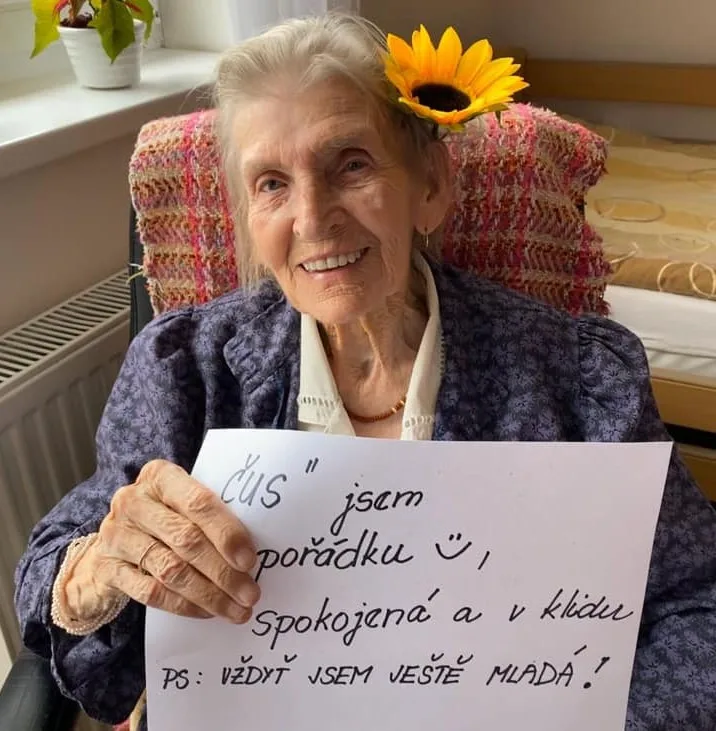 ČUS" jsem
pořádku ,
spokojená a v klidu
PS: VŽDYŤ JSEM JEŠTĚ MLADÁ!